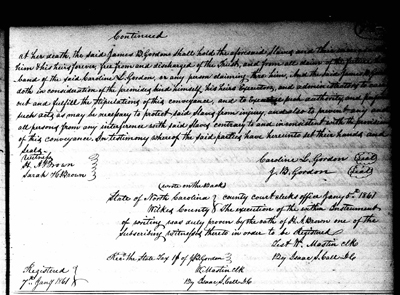 Continued
at her death, the said James B. Gordon shall hold the aforesaid Slaves and their increase to
him & his heirs forever, free from and discharged of the Trust, and from all claim of the future hus-
band of the said Caroline L. Gordon, or any person claiming thro him, And the said James B. Gordon
doth in consideration of the premises bind himself, his heirs, Executors, and administrators to carry
out and fulfill the stipulations of this conveyance, and to such authority and do all
such acts as may be necessary to protect said slaves from injury, and to prevent any and
all persons from any interference with said Slaves contrary to and inconsistent with the provisions
of this conveyance. In testimony whereof the said parties have hereunto set their hands and
Seals
Witness
H. A. Brown
Sarah Brown
Caroline L. Gordon (Seal)
J. B. Gordon (Seal)
(write on the Back)
State of North Carolina } county court clerks office Jany 5th 1861
Wilkes County } The execution of the within Instrument
of writing was duly proven by the oath of H. A. Brown one of the
Subscribing witnesses thereto in order to be Registered
Test W. Mastin clk
By Isaac S. Call D.C.
Rec'd the State Tax of J. B. Gordon
W. Mastin clk
By Isaac S. Call D.C.
Registered
7th Jany 1861